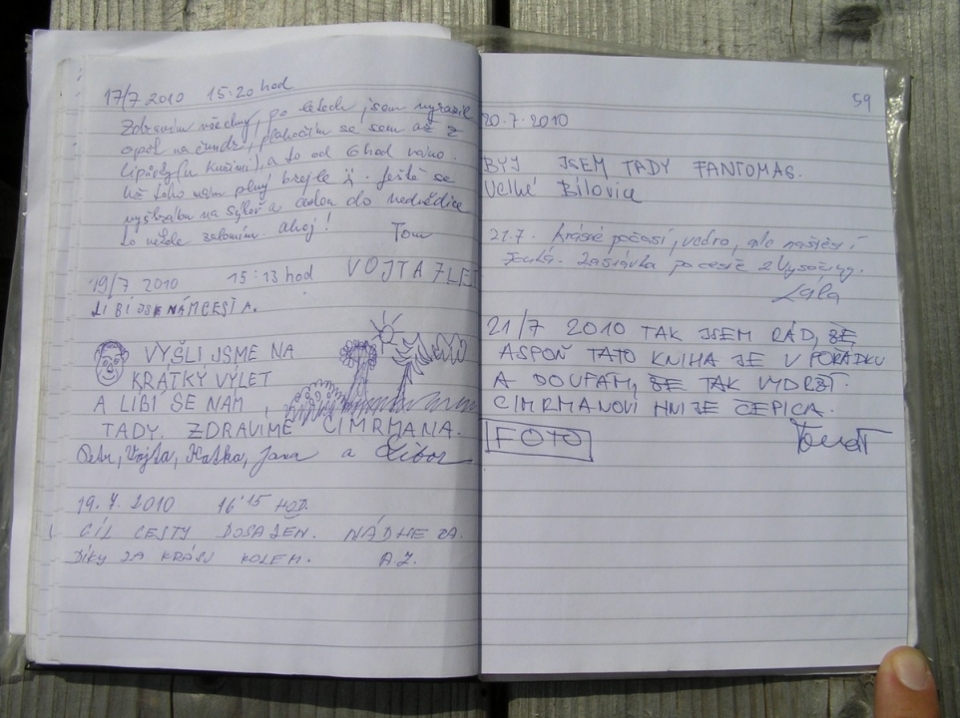 17/7 2010 15:20 hod
Zdravím všechny, po letech jsem vyrazil
opět na čundr, se sem až z
Lipůvky (u Kuřimi) a to od 6 hod ráno.
už toho mám plný brejle. Ještě se
na a do
to někde zalomím. Ahoj!
Tom
19/7 2010 15:13 hod VOJTA 7 LET
LÍBÍ JSE NÁM CESTA.
VYŠLI JSME NA
KRÁTKÝ VÝLET
A LÍBÍ SE NÁM,
TADY. ZDRAVÍME CIMRMANA.
Petr, Vojta, Katka, Jana a Libor
19.7.2010 16'15 HOD.
CÍL CESTY DOSAŽEN. NÁDHERA.
DÍKY ZA KRÁSU KOLEM. A.Z.
59
20.7.2010
BYJ JSEM TADY FANTOMAS.
Velké Bílovice
21.7. Krásné počasí, vedro, ale naštěstí
fouká. Zastávka po cestě z Vysočiny.
Lála
21/7 2010 TAK JSEM RÁD, ŽE
ASPOŇ TATO KNIHA JE V POŘÁDKU
A DOUFÁM, ŽE TAK VYDRŽÍ.
CIMRMANOVI HNIJE ČEPICA.
FOTO